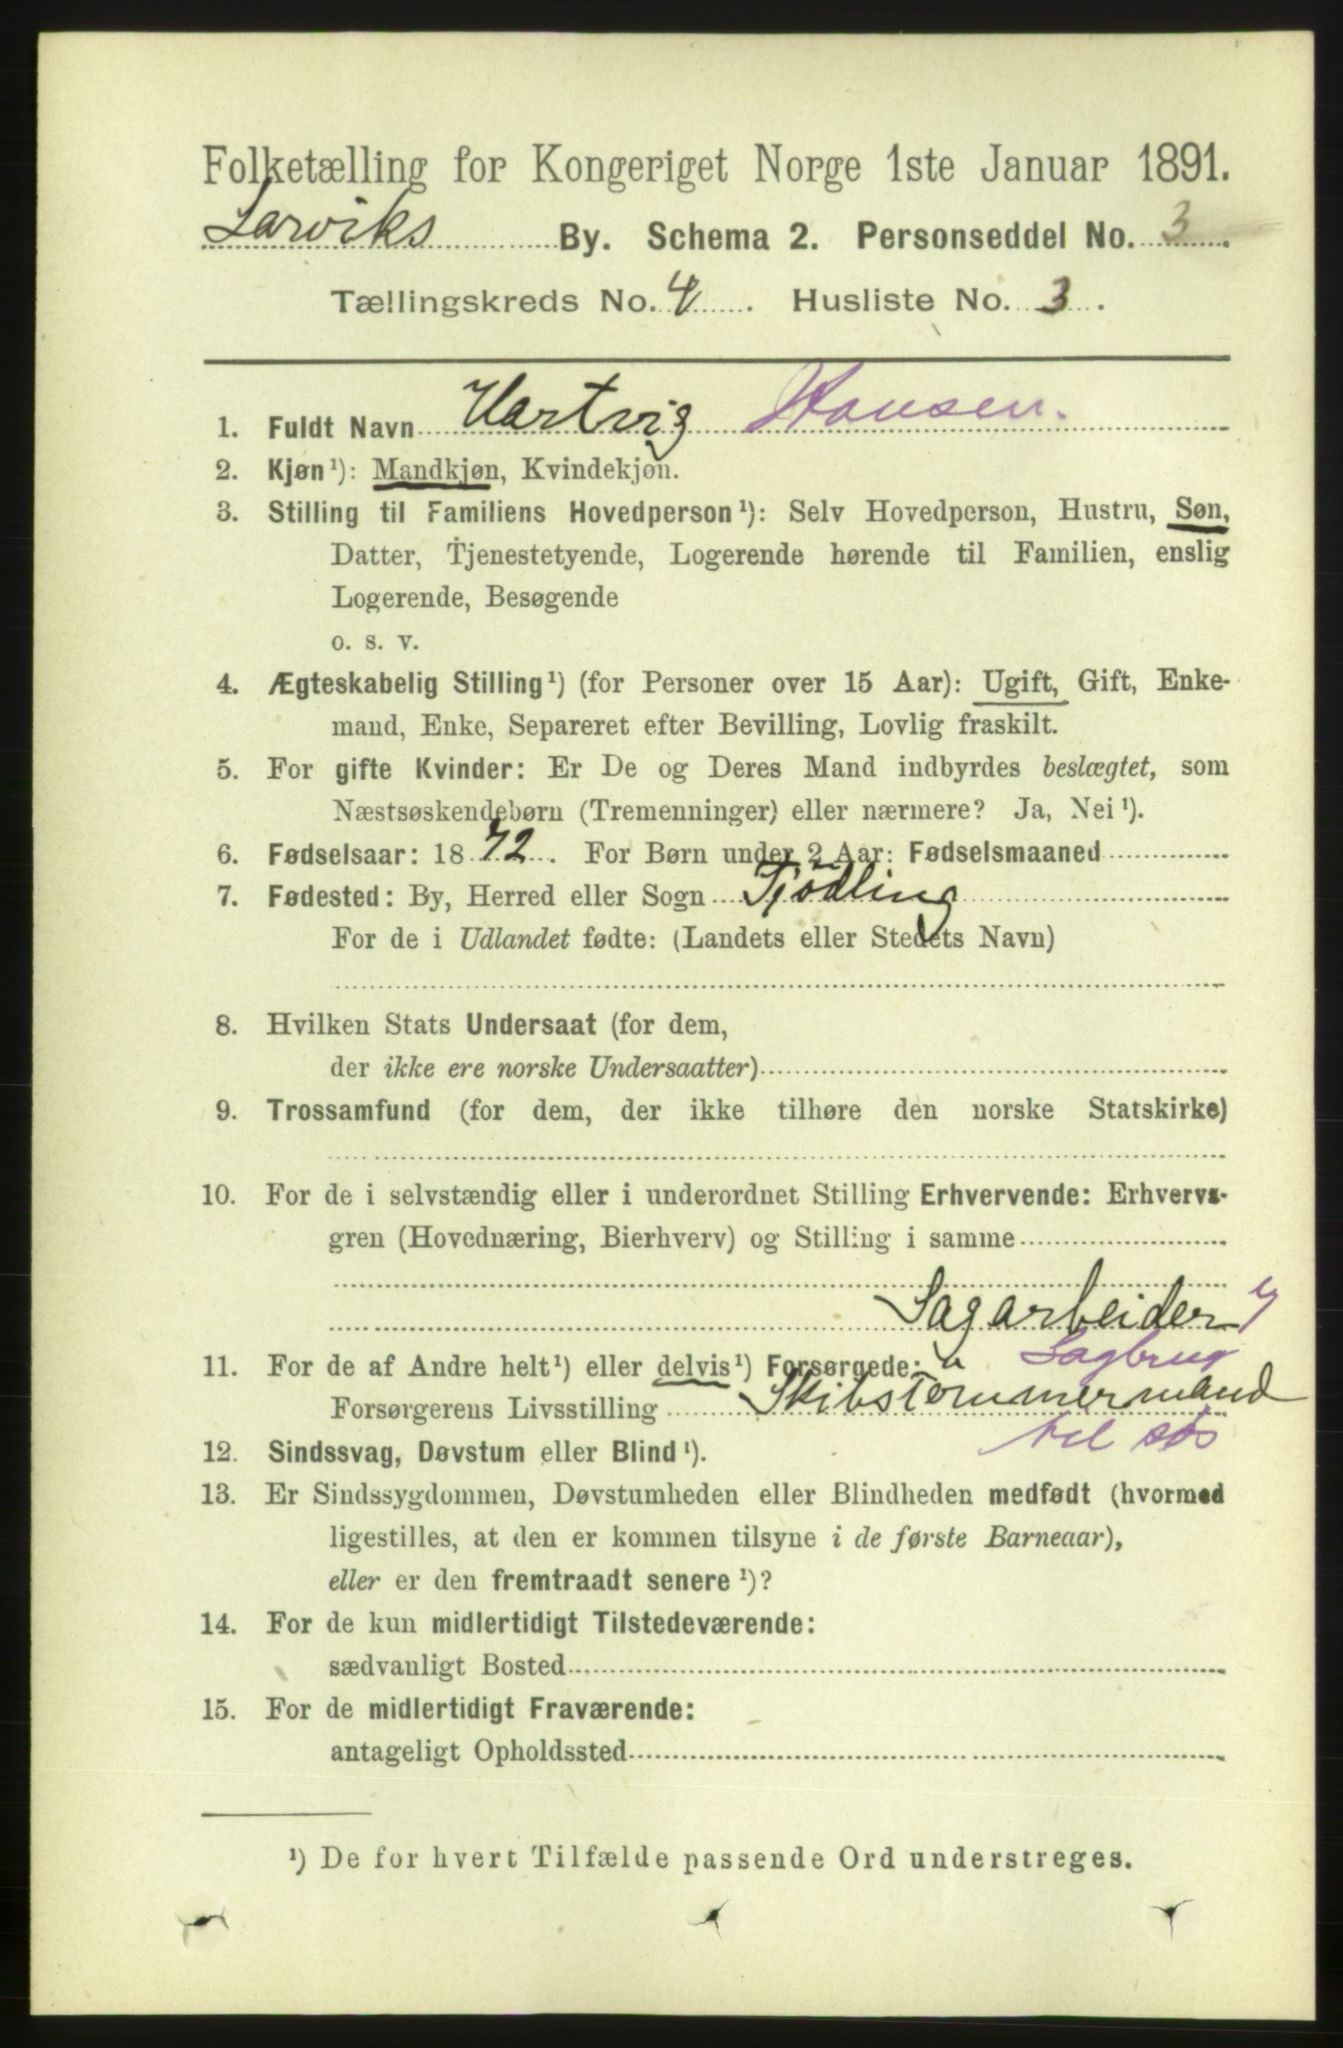 Folketælling for Kongeriget Norge 1ste Januar 1891.
Larviks By. Schema 2. Personseddel No. 3.
Tællingskreds No. 4. Husliste No. 3.
1. Fuldt Navn Hartvig Hansen.
2. Kjøn¹): Mandkjøn, Kvindekjøn.
3. Stilling til Familiens Hovedperson¹): Selv Hovedperson, Hustru, Søn,
Datter, Tjenestetyende, Logerende hørende til Familien, enslig
Logerende, Besøgende
o. s. v.
4. Ægteskabelig Stilling¹) (for Personer over 15 Aar): Ugift, Gift, Enke-
mand, Enke, Separeret efter Bevilling, Lovlig fraskilt.
5. For gifte Kvinder: Er De og Deres Mand indbyrdes beslægtet, som
Næstsøskendebørn (Tremenninger) eller nærmere? Ja, Nei¹).
6. Fødselsaar: 1872. For Børn under 2 Aar: Fødselsmaaned
7. Fødested: By, Herred eller Sogn Tjödling
For de i Udlandet fødte: (Landets eller Stedets Navn)
8. Hvilken Stats Undersaat (for dem,
der ikke ere norske Undersaatter)
9. Trossamfund (for dem, der ikke tilhøre den norske Statskirke)
10. For de i selvstændig eller i underordnet Stilling Erhvervende: Erhvervs-
gren (Hovednæring, Bierhverv) og Stilling i samme
Sagarbeider
Sagbrug
11. For de af Andre helt¹) eller delvis¹) Forsørgede:
Forsørgerens Livsstilling Skibstømmermand
til søs
12. Sindssvag, Døvstum eller Blind¹).
13. Er Sindssygdommen, Døvstumheden eller Blindheden medfødt (hvormed
ligestilles, at den er kommen tilsyne i de første Barneaar),
eller er den fremtraadt senere¹)?
14. For de kun midlertidigt Tilstedeværende:
sædvanligt Bosted
15. For de midlertidigt Fraværende:
antageligt Opholdssted
¹) De for hvert Tilfælde passende Ord understreges.